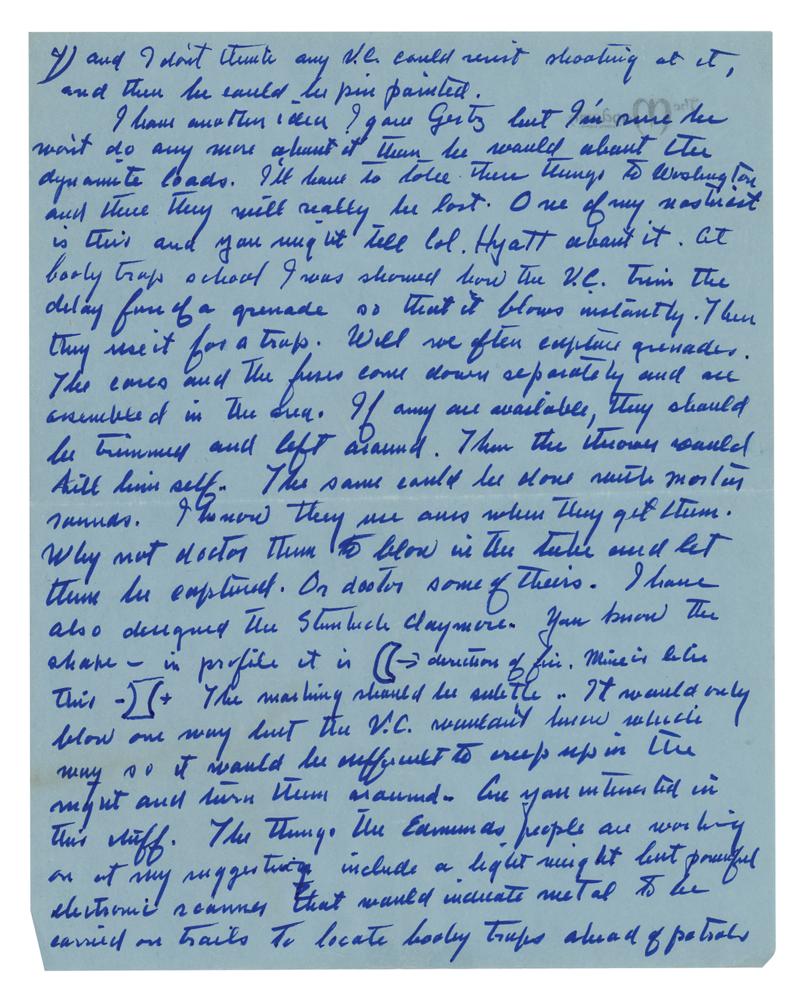 4) and I don't think any V.C. could resist shooting at it,
and then he could be pin pointed.
I have another idea I gave Gertz but I'm sure he
won't do any more about it than he would about the
dynamite loads. I'll have to take these things to Washington
and there they will really be lost. One of my nastiest
is this and you might tell Col. Hyatt about it. At
booby trap school I was showed how the V.C. trim the
delay fuse of a grenade so that it blows instantly. Then
they use it for a trap. Well we often capture grenades.
The cases and the fuses come down separately and are
assembled in the area. If any are available, they should
be trimmed and left around. Then the thrower would
kill himself. The same could be done with mortar
rounds. I know they use ours when they get them.
Why not doctor them to blow in the tube and let
them be captured. Or doctor some of theirs. I have
also designed the Steinbeck Claymore. You know the
shape – in profile it is → direction of fire. Mine is like
this - + The marking should be subtle .. It would only
blow one way but the V.C. wouldn't know which
way so it would be difficult to creep up in the
night and turn them around. Are you interested in
this stuff. The things the Edmunds people are working
on at my suggestion include a light weight but powerful
electronic scanner that would indicate metal to be
carried on trails to locate booby traps ahead of patrols